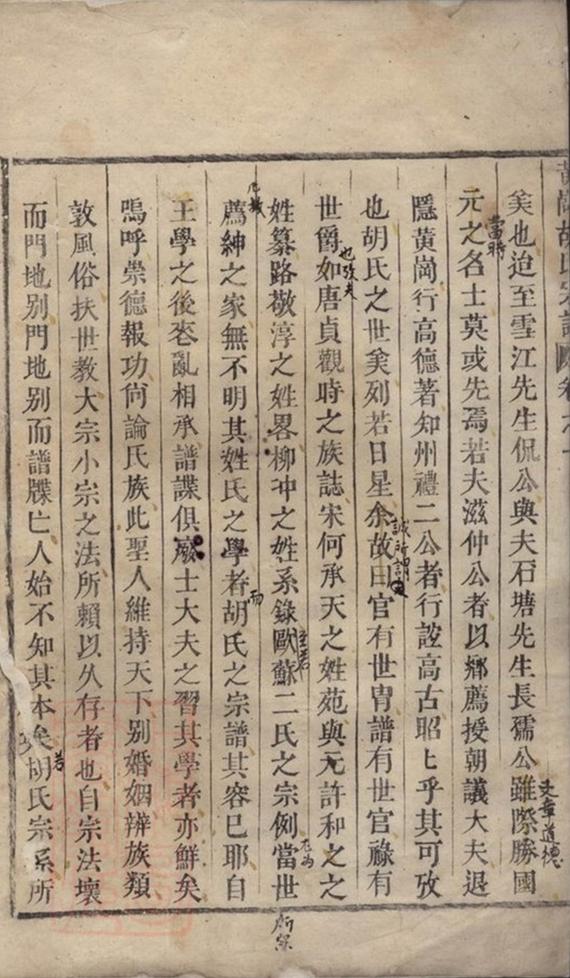 矣也迨至雪江先生侃公與夫石塘先生長孺公雖際勝國
元之名士莫或先焉若夫滋仲公者以鄉薦授朝議大夫退
隱黃崗行高德著知州禮二公者行誼高古昭〻乎其可攷
也胡氏之世矣列若日星余故曰官有世胄譜有世官祿有
世爵如唐貞觀時之族誌宋何承天之姓苑與元許和之之
姓纂路敬淳之姓畧柳冲之姓系錄歐蘇二氏之宗例當世
薦紳之家無不明其姓氏之學者胡氏之宗譜其容已耶自
王學之後衰亂相承譜諜俱廢士大夫之習其學者亦鮮矣
嗚呼崇德報功尙論氏族此聖人維持天下别婚姻辨族類
敦風俗扶世教大宗小宗之法所賴以久存者也自宗法壞
而門地别門地别而譜牒亡人始不知其本矣胡氏宗系所
文章道德
當時
也攷夫
至若
尤為
而
若